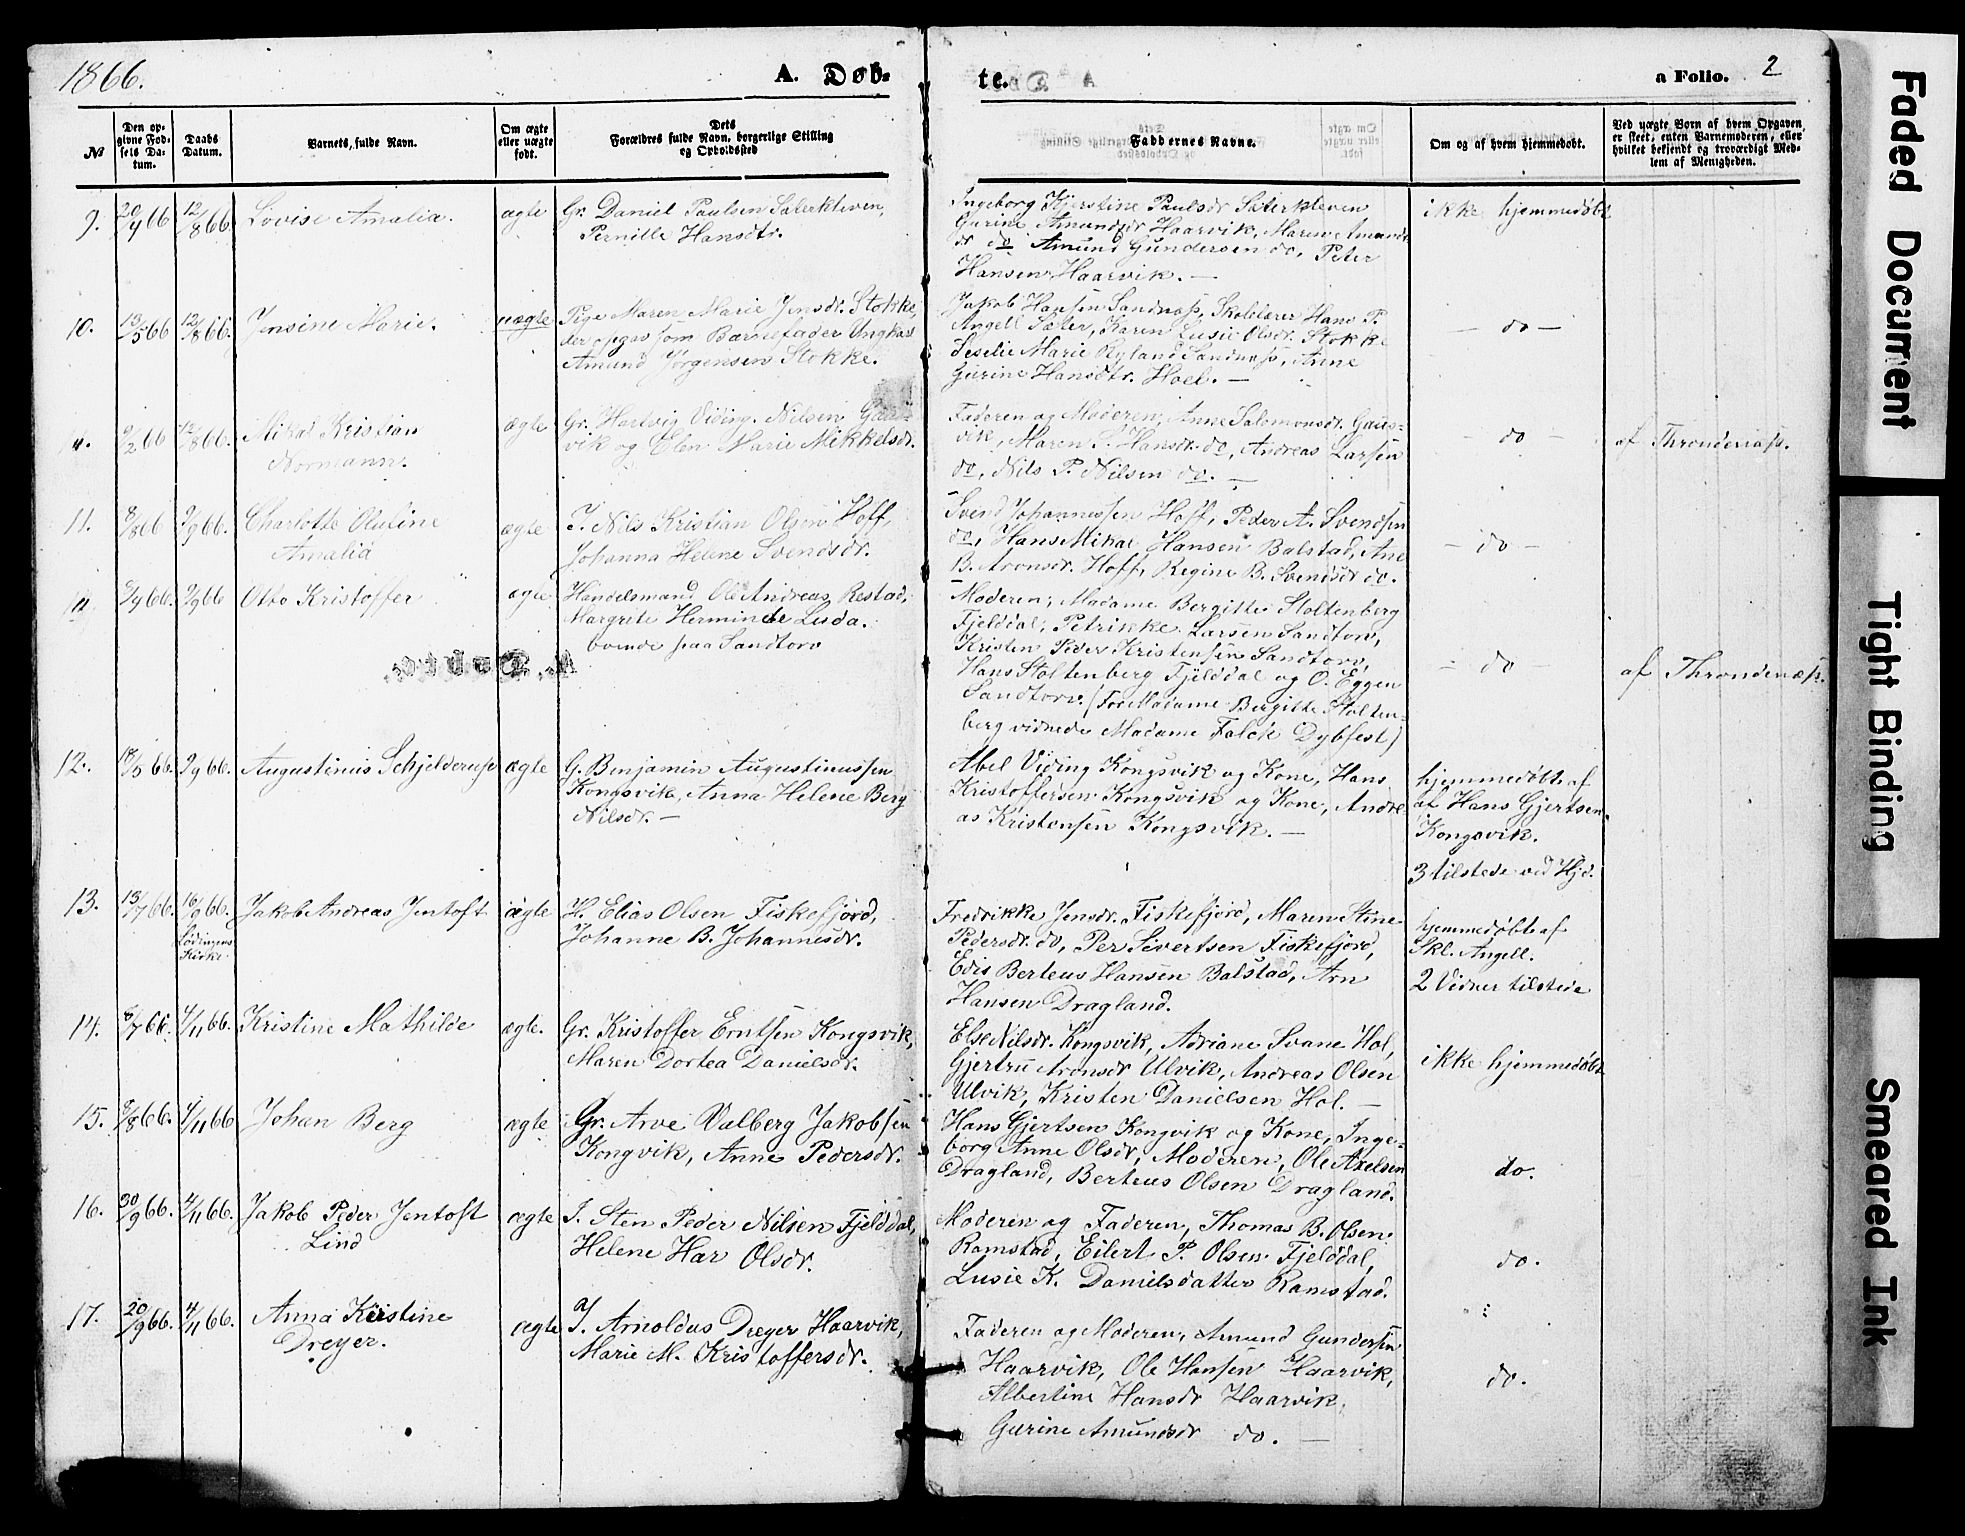 1866.
A. Døb-
te.
a Folio. 2
№
Den op-
givne Fød-
sels Da-
tum.
Daabs
Datum.
Barnets fulde Navn.
Om ægte
eller uægte
født.
Dets
Forældres fulde Navn, borgerlige Stilling
og Opholdssted
Faddernes Navne.
Om og af hvem hjemmedøbt.
Ved uægte Børn af hvem Opgaven
er skeet, enten Barnemoderen, eller
hvilket bekjendt og troværdigt Med-
lem af Menigheden.
9. 20/4 66 12/8 66. Lovise Amalia. ægte
Gr. Daniel Paulsen Säterkleven,
Pernille Hansdtr.
Ingeborg Kjerstine Paulsdr Säterkleven
Gurine Amundsdr Haarvik, Maren Amunds
dr do Amund Gundersen do, Peter
Hansen Haarvik. —
ikke hjemmedøbt
10. 13/5 66 12/8 66. Jensine Marie. uægte
Pige Maren Marie Jensdr. Stokke,
der opgas som Barnefader Ungkarl
Amund Jørgensen Stokke.
Jakob Hansen Sandnæss, Skolelærer Hans P.
Angell Sæter, Karen Lusie Olsdr. Stokke
Seselie Marie Ryland Sandnæss, Anne
Gurine Hansdtr. Hoel. —
— do —
a. 9/2 66 12/8 66. Mikal Kristian
Normann. ægte
Gr. Hartvig Viding. Nilsen Gaus-
vik og Elen Marie Mikkelsdr.
Faderen og Moderen, Anne Salomonsdr. Gaus-
vik, Maren S. Hansdr. do, Andreas Larsen
do, Nils P. Nilsen do. —
— do —
af Throndenæss.
11. 8/8 66 9/9 66. Charlotte Oluline
Amalia ægte
I. Nils Kristian Olsen Hoff,
Johanna Helene Svendsdr.
Svend Johannessen Hoff, Peder A. Svendsen
do, Hans Mikal Hansen Balstad, Ane
B. Aronsdr. Hoff, Regine B. Svendsdr do.
— do —
9/4 66. 9/9 66 Otto Kristoffer ægte
Handelsmand Ole Andreas Restad,
Margrete Herminde Lusda.
boende paa Sandtorv
Moderen, Madame Bergitte Stoltenberg
Fjelddal, Petrikke Larsen Sandtorv,
Kristen Peder Kristensen Sandtorv,
Hans Stoltenberg Fjelddal og O. Eggen
Sandtorv. (For Madame Bergitte Stolten-
berg vidnede Madame Falck Dybfest)
— do —
af Throndenæss.
12. 18/5 66. 9/9 66. Augustinus Schjelderup ægte
G. Benjamin Augustinussen
Kongsvik, Anna Helene Berg
Nilsdr. —
Abel Viding Kongsvik og Kone, Hans
Kristoffersen Kongsvik og Kone, Andre-
as Kristensen Kongsvik. —
hjemmedøbt af
af Hans Gjertsen
Kongsvik.
3 tilstede ved Hjd.
13. 13/7 66. 16/9 66.
Lødingens
Kirke.
Jakob Andreas Jentoft ægte
H. Elias Olsen Fiskefjord,
Johanne B. Johannesdr.
Fredrikke Jensdr. Fiskefjord, Maren Stine
Pedersdr. do, Per Sivertsen Fiskefjord,
Edis Berteus Hansen Balstad, Arn
Hansen Dragland.
hjemmedøbt af
Skl. Angell.
2 Vidner tilstede
14. 8/7 66. 4/11 66. Kristine Mathilde ægte.
Gr. Kristoffer Erntsen Kongsvik,
Maren Dortea Danielsdr.
Else Nilsdr. Kongsvik, Adriane Svane Hol,
Gjertru Aronsdr Ulvik, Andreas Olsen
Ulvik, Kristen Danielsen Hol. —
ikke hjemmedøbt
15. 8/8 66. 4/11 66 Johan Berg ægte
Gr. Arve Valberg Jakobsen
Kongvik, Anne Pedersdr.
Hans Gjertsen Kongvik og Kone, Inge-
borg Anne Olsdr, Moderen, Ole Axelsen
Dragland, Berteus Olsen Dragland.
do.
16. 30/9 66. 4/11 66. Jakob Peder Jentoft
Lind ægte
I. Sten Peder Nilsen Fjelddal,
Helene Har Olsdr.
Moderen og Faderen, Thomas B. Olsen
Ramstad, Eilert P. Olsen Fjelddal,
Lusie K. Danielsdatter Ramstad.
do.
17. 20/9 66. 4/11 66. Anna Kristine
Dreyer. ægte
I. Arnoldus Dreyer Haarvik,
Marie M. Kristoffersdr.
Faderen og Moderen, Amund Gundersen
Haarvik, Ole Hansen Haarvik,
Albertine Hansdr Haarvik,
Gurine Amundsdr do. —
do.
Faded Document
Tight Binding
Smeared Ink